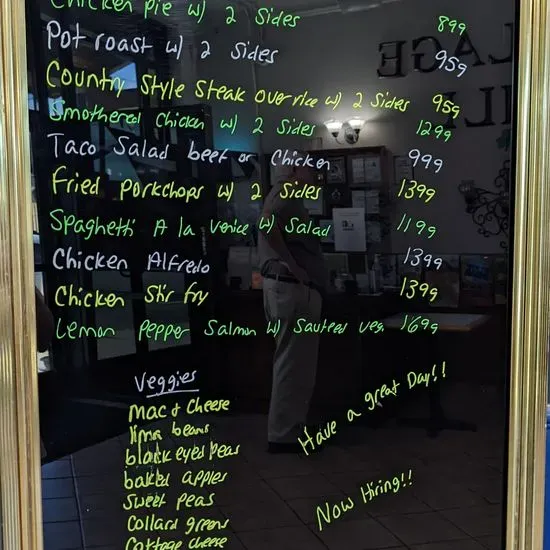 Chicken Pie w/ 2 Sides 899
Pot roast w/ 2 Sides 959
Country Style Steak over rice w/ 2 Sides 959
Smothered Chicken w/ 2 Sides 1299
Taco Salad beef or Chicken 999
Fried Porkchops w/ 2 Sides 1399
Spaghetti A la Venice w/ Salad 1199
Chicken Alfredo 1399
Chicken Stir fry 1399
Lemon Pepper Salmon w/ Sauteed veg. 1699
Veggies
Mac & Cheese
lima beans
black eyed peas
baked apples
Sweet peas
Collard greens
Cottage cheese
Have a great Day!!
Now Hiring!!